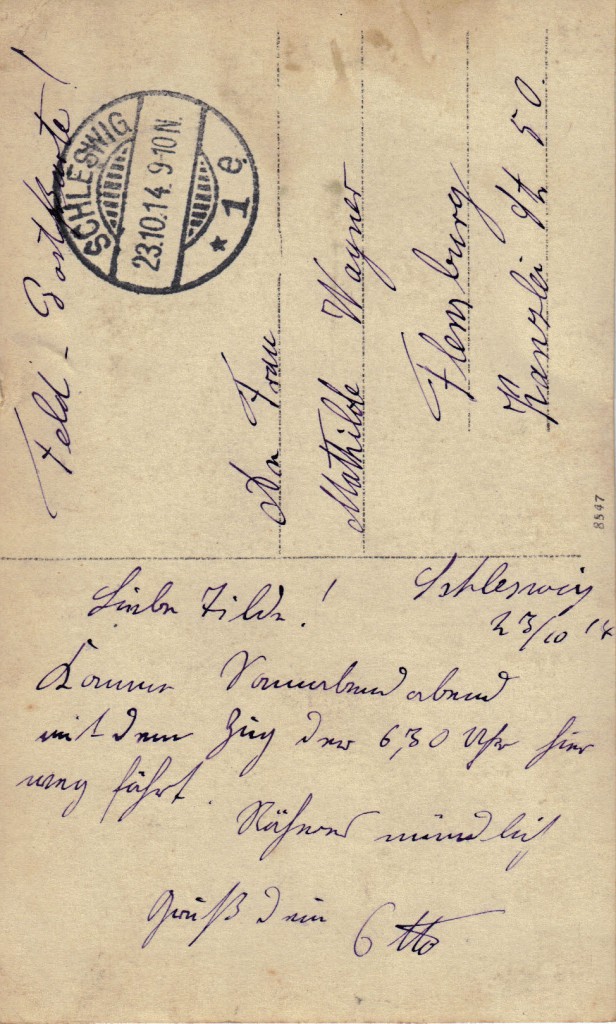 Feld-Postkarte!
SCHLESWIG
23.10.14. 9-10 N.
* 1 e.
An Frau
Mathilde Wagner
Flensburg
Kanzlei St 50.
8547
Schleswig
23/10 14
Liebe Tilde!
Komme Sonnabend abend
mit dem Zug der 6,30 Uhr hier
weg fährt.
Näheres mündlich
Gruß dein Otto